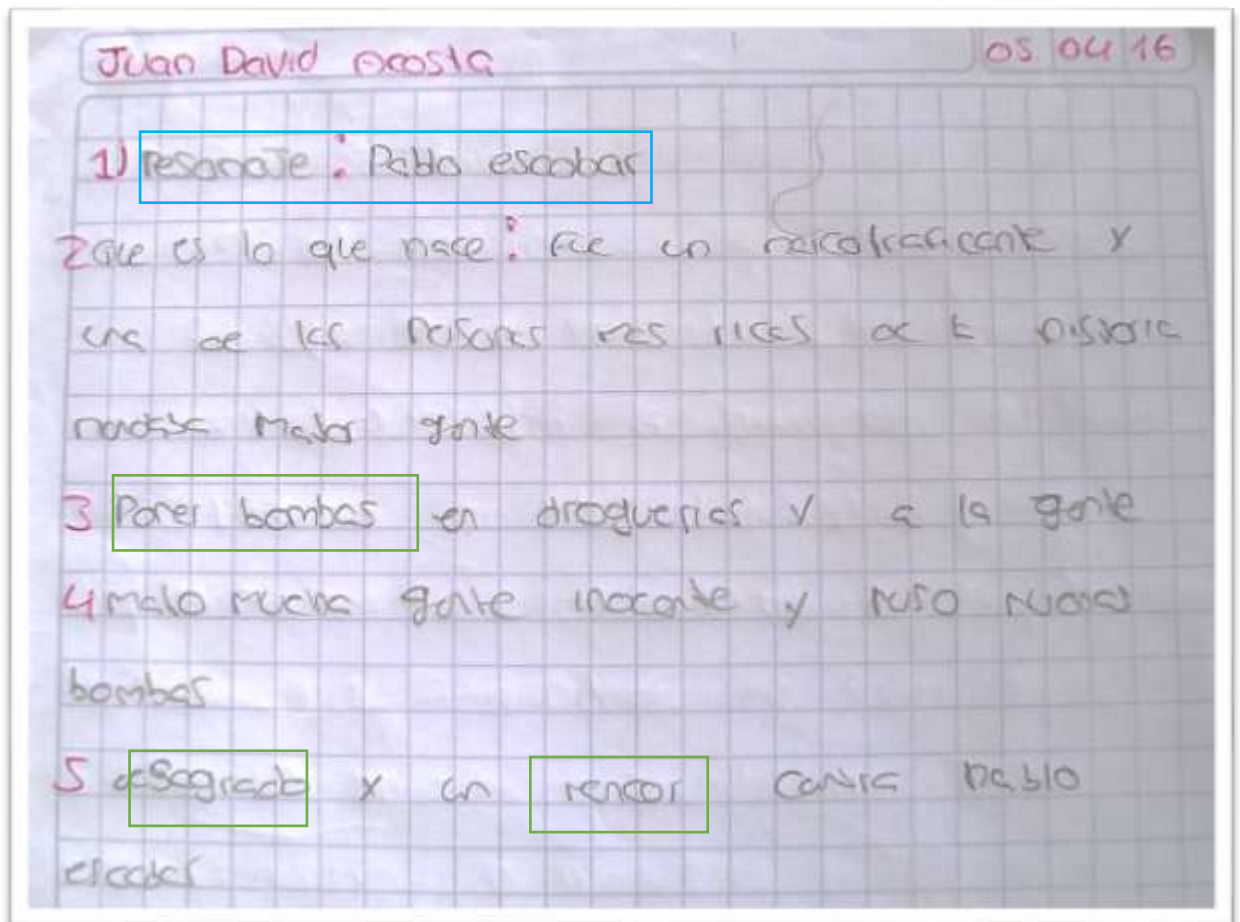 Juan David Acosta 05 04 16
1) Personaje : Pablo escobar
2 que es lo que hace : fue un narcotraficante y
una de las personas mas ricas de la historia
mandaba matar gente
3 Poner bombas en droguerias y a la gente
4 mato mucha gente inocente y puso muchas
bombas
5 desagrado y un rencor contra pablo
escobar